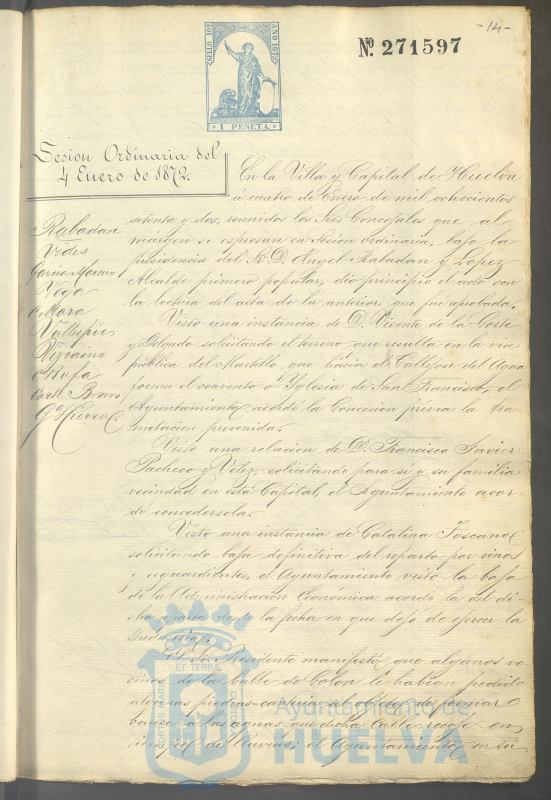 -14-
SELLO 10º
AÑO 1872
1 PESETA
Nº. 271597
Sesion Ordinaria del
4 Enero de 1872.
Rabadan
Vides
Garcia
Vega
Mora
Vizcaino
Gª Hierro
En la Villa y Capital de Huelva
á cuatro de Enero de mil ochocientos
setenta y dos, reunidos los Sres Concejales que al
márgen se espresan en Sesion ordinaria, bajo la
presidencia del Sr. D. Angel Rabadan y Lopez
Alcalde primero popular, dio principio el acto con
la lectura del acta de la anterior que fué aprobada.
Visto una instancia de D. Vicente de la Corte
y Delgado solicitando el terreno que resulta en la via
pública del Martillo que hacia el Callejon del Agua
forma el convento o Yglesia de San Francisco, el
Ayuntamiento acordó la Concesion prévia la tra-
mitacion prevenida.
Visto una relacion de D. Francisco Javier
Pacheco y Velez, solicitando para si y su familia
vecindad en esta Capital, el Ayuntamiento acor-
dó concedersela.
Visto una instancia de Catalina Toscano
solicitando baja definitiva del reparto por vinos
y aguardientes, el Ayuntamiento visto la baja
de la Administracion Económica acordó la del di-
cho reparto desde la fecha en que dejo de ejercer la
industria.
El Sr. Presidente manifestó que algunos ve-
cinos de la Calle de Colon le habian pedido
algunas piedras
cauce a las aguas que dicha Calle recoge en
tiempo de lluvias; el Ayuntamiento en su
PORTUS MARIS
ET TERRAE
CUSTODIA
Ayuntamiento de
HUELVA